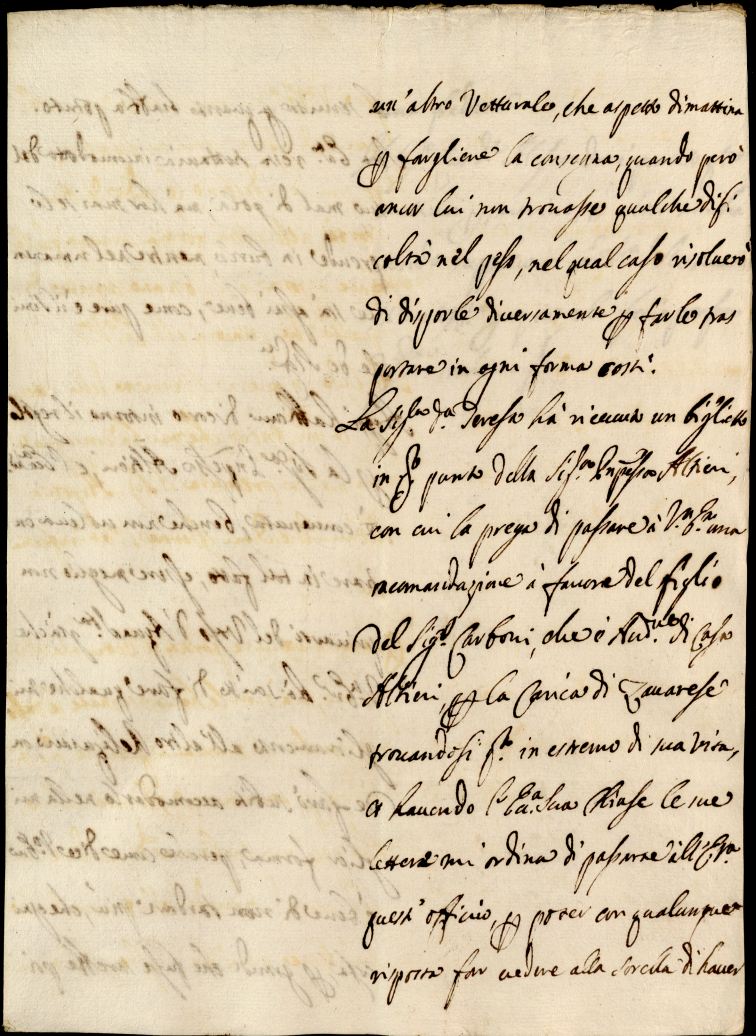 un'altro Vetturale, che aspetto dimattina
p fargliene la consegna, quando però
ancor lui non trouasse qualche difi
coltà nel peso, nel qual caso risoluerò
di disporle diuersamente p farle tras
portare in ogni forma costì.
La Sig.ra D.a Teresa hà riceuuto un biglietto
in q.to punto della Sig.ra Altieri,
con cui la prega di passare à V.ra una
racomandazione à fauore del figlio
del Sig.r Carboni, che è Aud.re di Casa
Altieri, p la Carica di
trouandosi q.to in estremo di sua vita,
et hauendo l'Ecc.a Sua chiuse le sue
lettere mi ordina di passarne all'E.V.ra
quest'officio, p poter con qualunque
risposta far uedere alla sorella di hauer